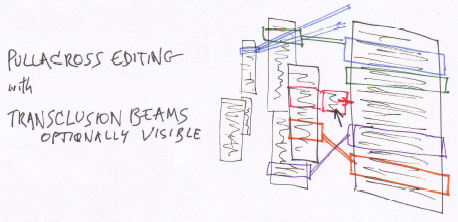 PULLACROSS EDITING
with
TRANSCLUSION BEAMS
OPTIONALLY VISIBLE